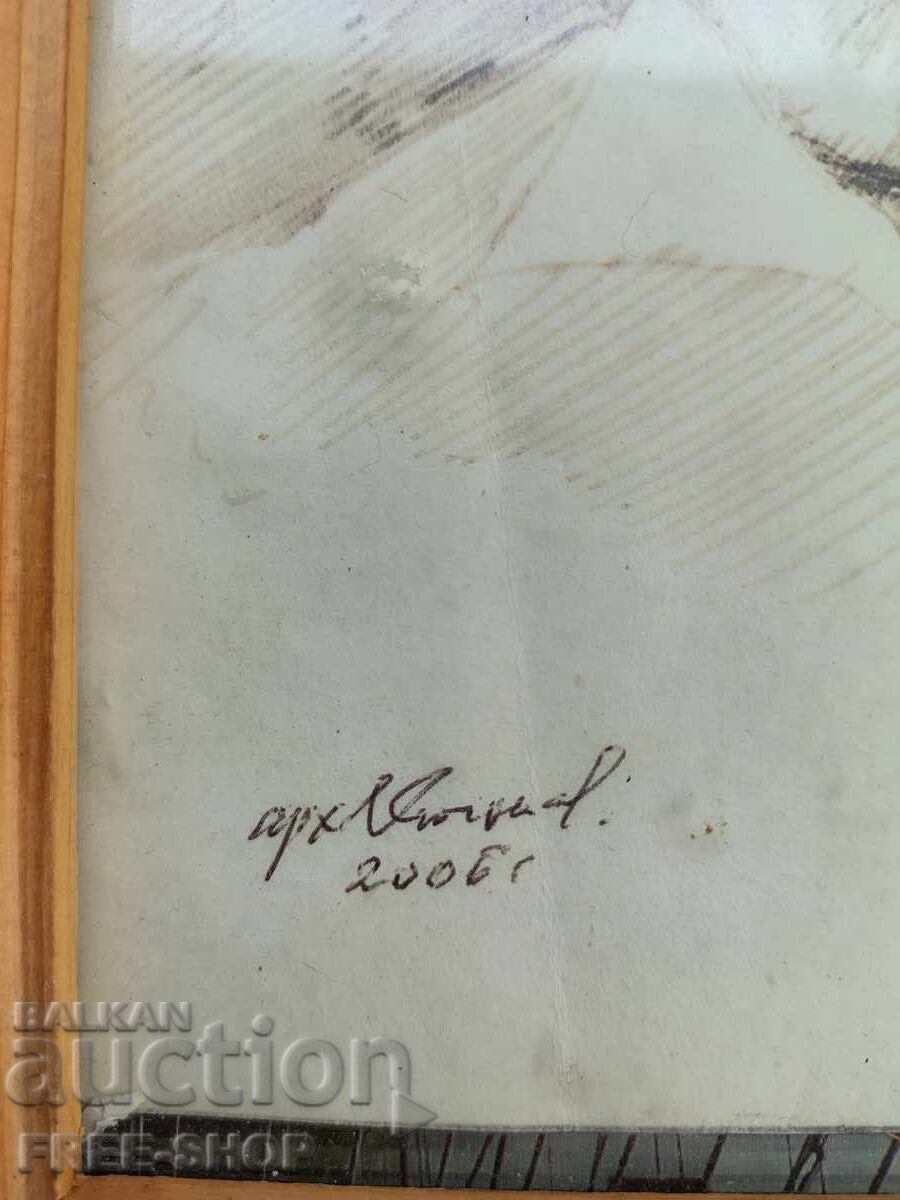 арх
2006 г
BALKAN
auction
FREE-SHOP